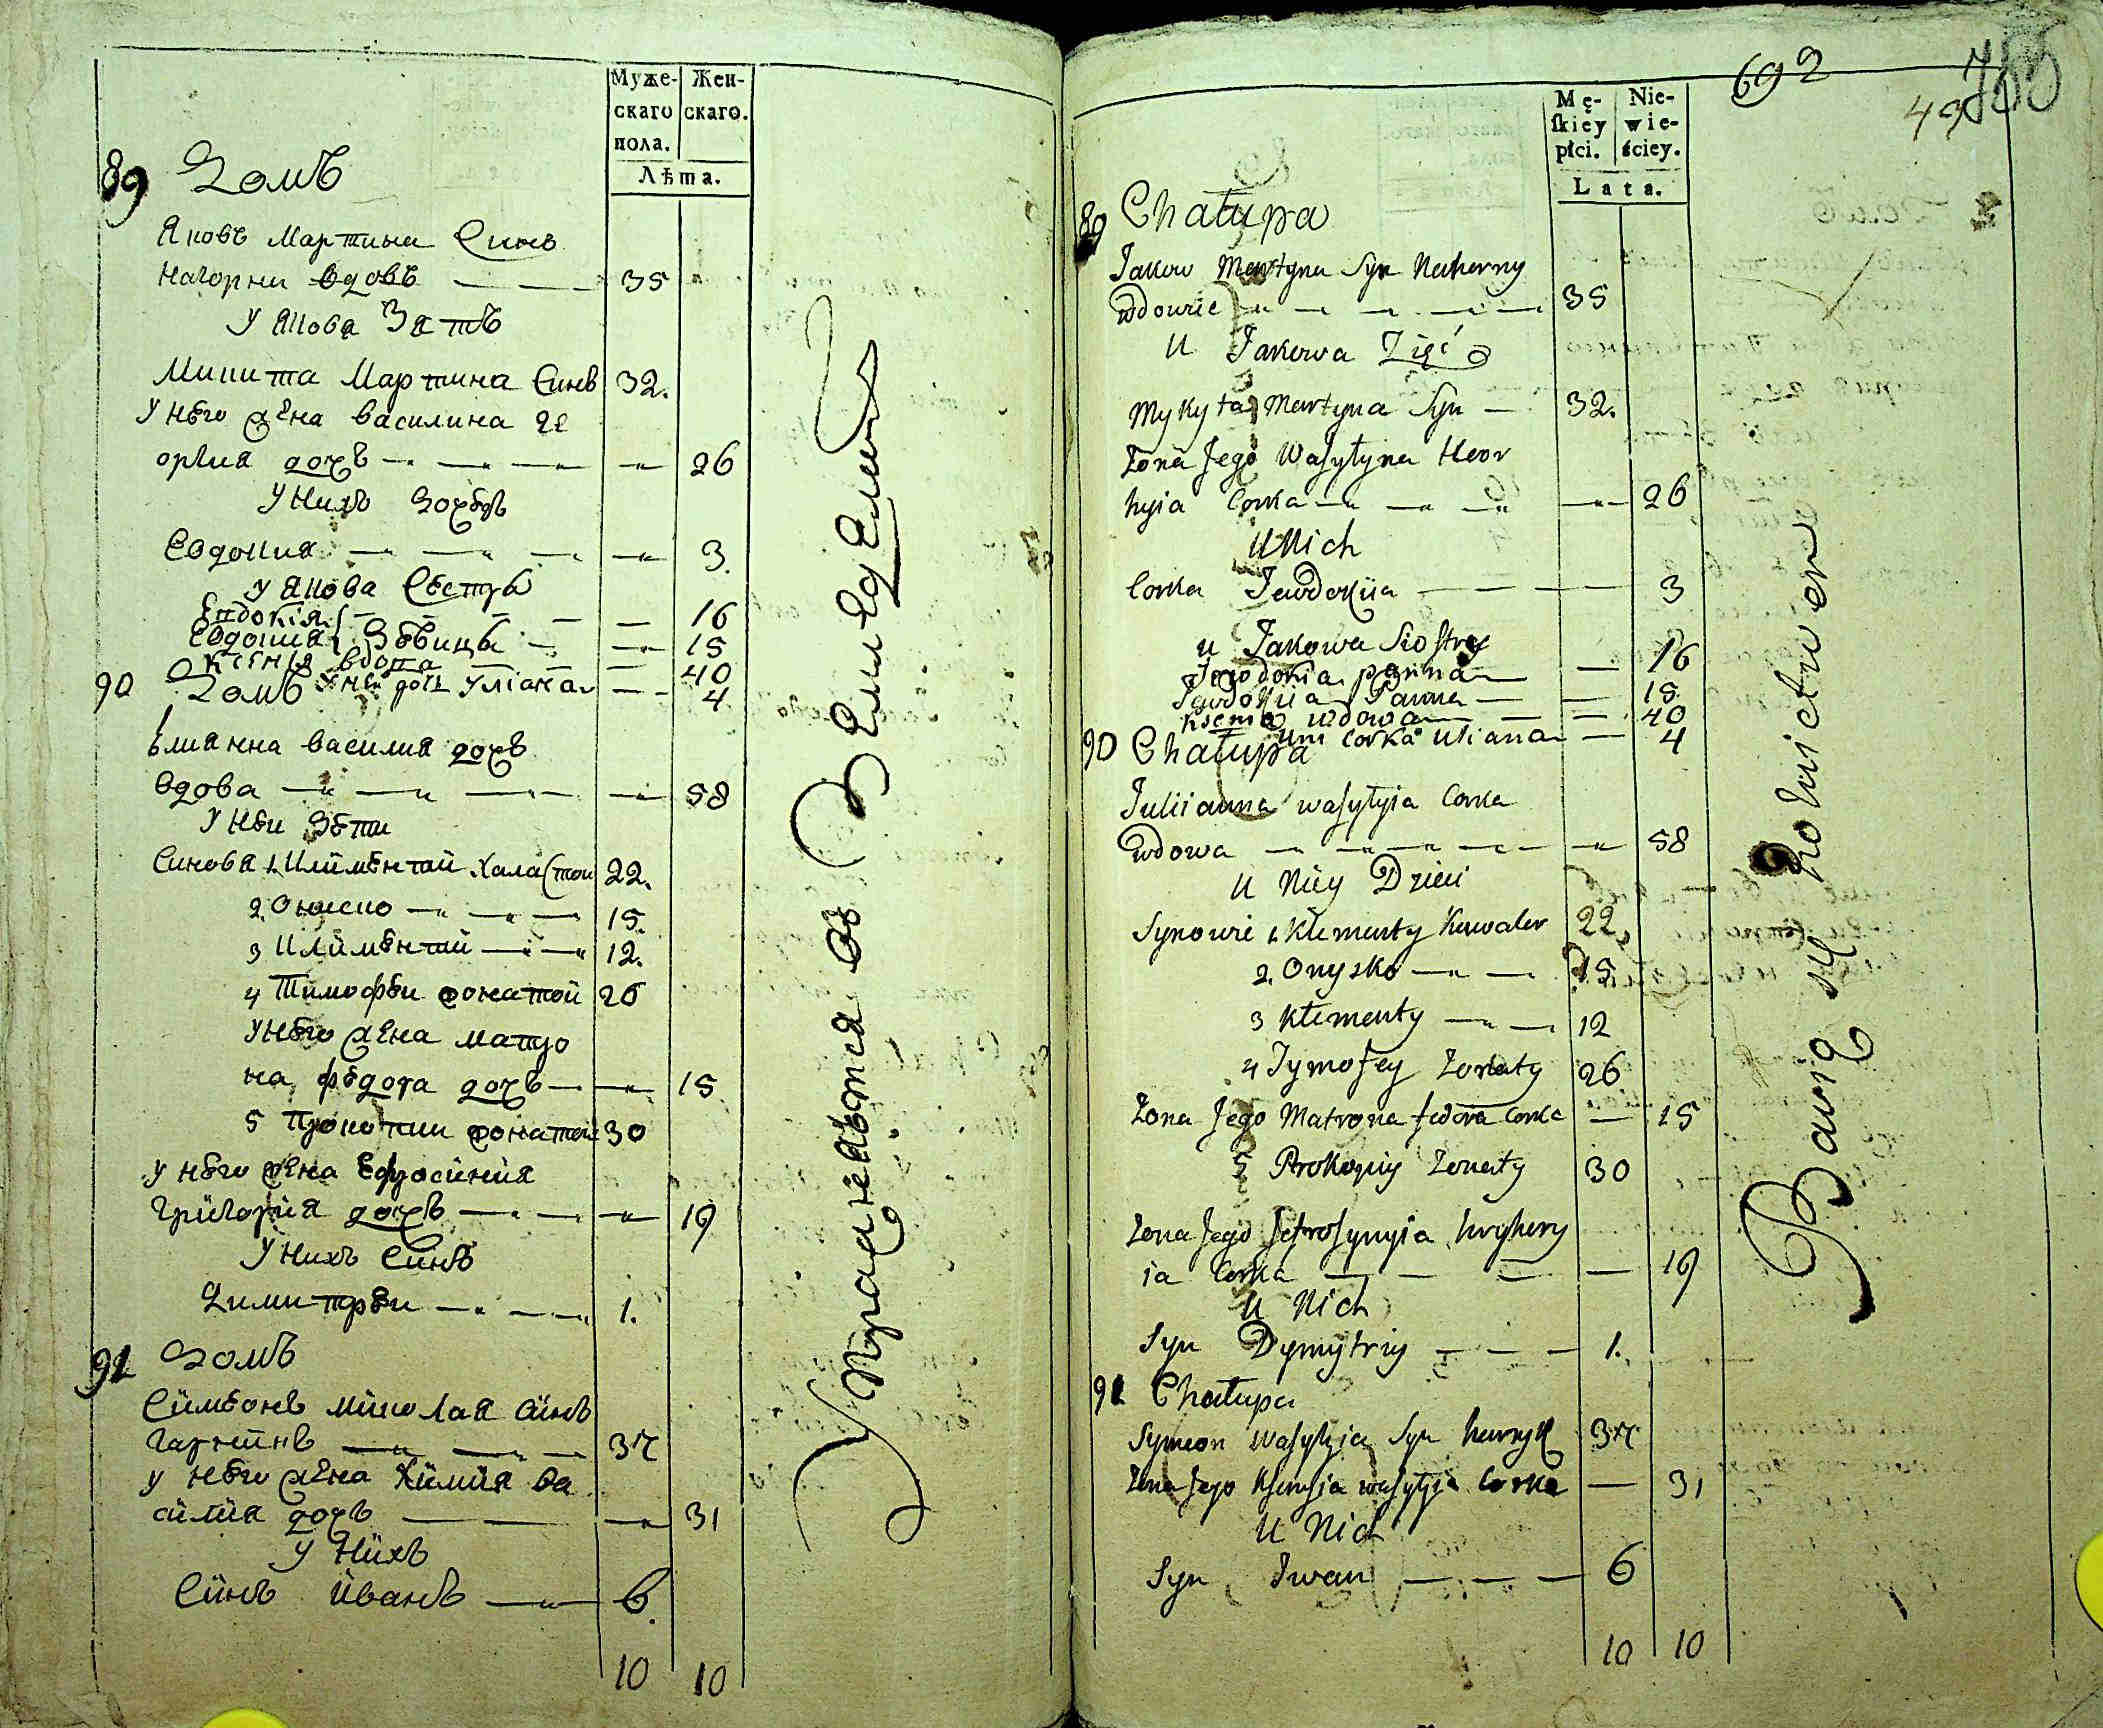 Муже-
скаго
пола.
Жен-
скаго.
Лѣта.
89 Домъ
Яковъ Мартина Синъ
Нагорни вдовъ 35
У Якова Зять
Микита Мартина Синъ 32.
У нѣго жена Василина Ге
оргия дочъ 26
У Нихъ Дочъ
Евдокия 3.
У Якова Сѣстры
Евдокія 16
Евдокия Дѣвицы 15
Ксѣнія вдова 40
90 Домъ У неи дочь Уліана 4
Ѣлианна Василия дочъ
Вдова 58
У Нѣи Дѣти
Синовя 1. Климѣнтий Халастои 22.
2. Ониско 15.
3 Климѣнтий 12.
4 Тимофѣи жонатой 26
У нѣго жена Матро
на Фѣдора дочъ 15
5 Прокопии жонатой 30
У нѣго жена Ефросиния
Григория дочъ 19
У Нихъ Синъ
Димитрѣи 1.
91 Домъ
Симѣонъ Миколая Синъ
37
У нѣго жена Ва
силия дочъ 31
У Нихъ
Синъ Иванъ 6.
10 10
Упражняются въ Земледелии
692
49
Mę-
ſkiey
płci.
Nie-
wie-
ściey.
Lata.
89 Chałupa
Jakow Martyna Syn Nahorny
Wdowiec 35
U Jakowa Zięć
Mykyta Martyna Syn 32.
Zona Jego Wasylyna Heor
hyia Corka 26
U Nich
Corka Jewdokiia 3
u Jakowa Siostry
Jewdokia panna 16
Jewdokiia Panna 15
Ksenia wdowa 40
90 Chałupa Uni Corka Uliana 4
Juliianna wasylyia Corka
wdowa 58
U Niey Dzieci
Synowie 1. Klementy Kawaler 22
2. Onysko 15.
3 Klementy 12
4 Tymofey Zonaty 26
Zona Jego Matrona fedora Corka 15
5 Prokopiy Zonaty 30
Zona Jego Jefrosynyia hryhory
ia Corka 19
U Nich
Syn Dymytriy 1.
91 Chałupa
Symeon wasylyia Syn 37
Zona Jego wasylyia Corka 31
U Nich
Syn Iwan 6
10 10
Bawią się Rolnictwem